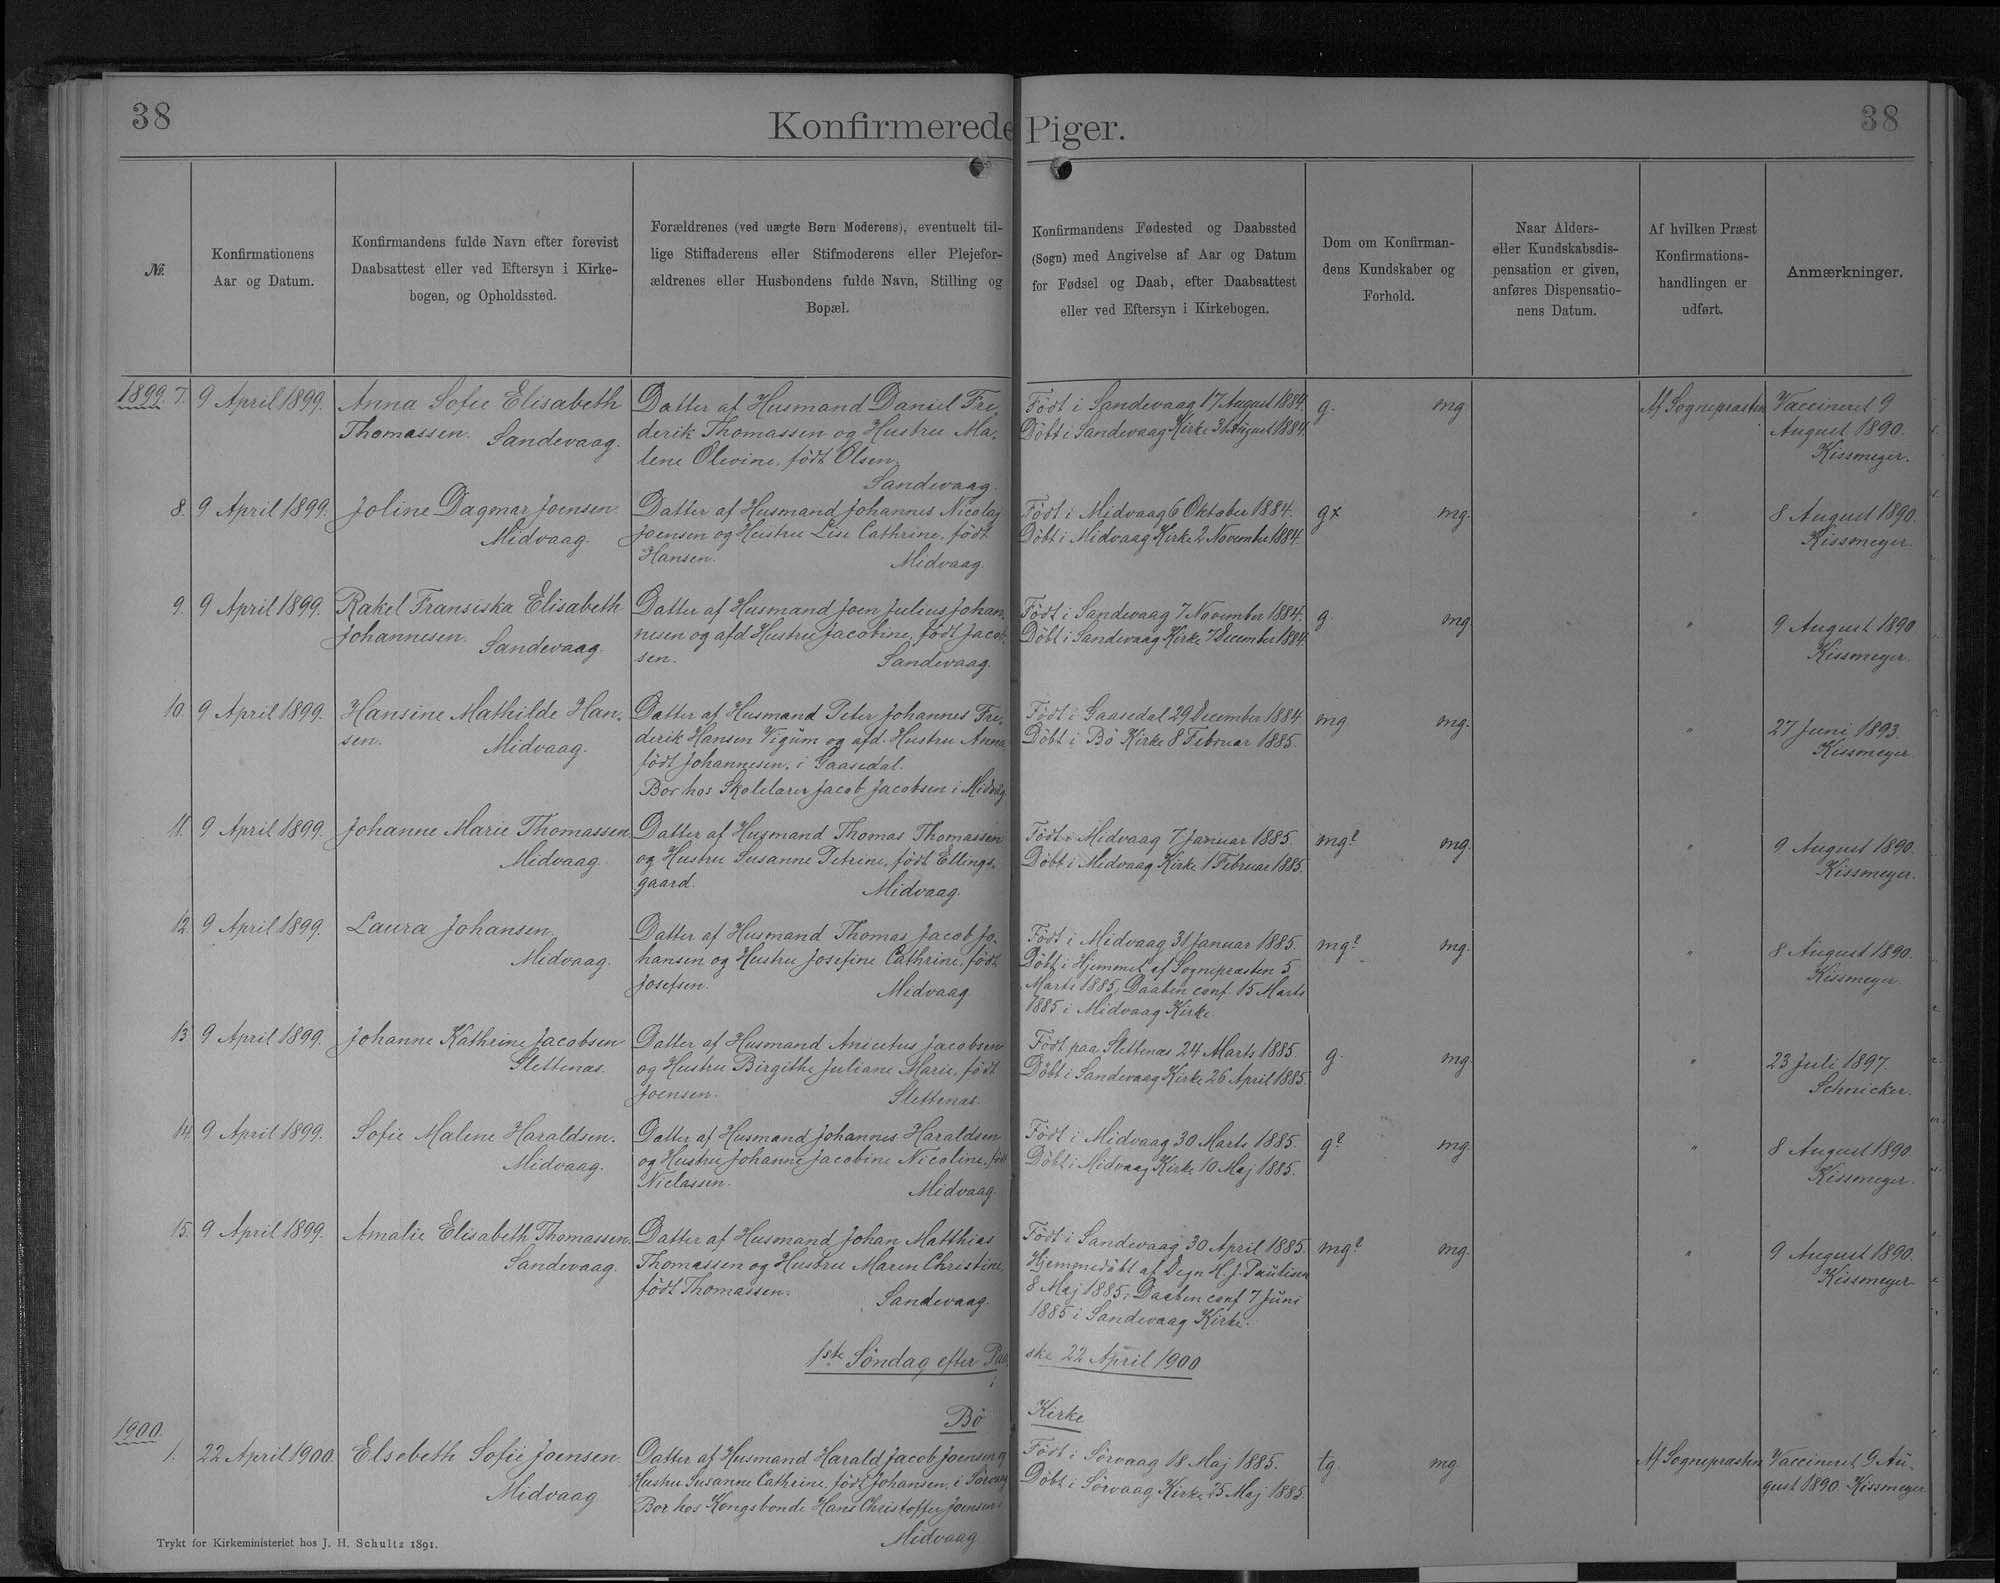 38
38
Konfirmerede Piger.
№.
Konfirmationens
Aar og Datum.
Konfirmandens fulde Navn efter forevist
Daabsattest eller ved Eftersyn i Kirke-
bogen, og Opholdssted.
Forældrenes (ved uægte Børn Moderens), eventuelt til-
lige Stiffaderens eller Stifmoderens eller Plejefor-
ældrenes eller Husbondens fulde Navn, Stilling og
Bopæl.
Konfirmandens Fødested og Daabssted
(Sogn) med Angivelse af Aar og Datum
for Fødsel og Daab, efter Daabsattest
eller ved Eftersyn i Kirkebogen.
Dom om Konfirman-
dens Kundskaber og
Forhold.
Naar Alders-
eller Kundskabsdis-
pensation er given,
anføres Dispensatio-
nens Datum.
Af hvilken Præst
Konfirmations-
handlingen er
udført.
Anmærkninger.
1899. 7. 9 April 1899.
Anna Sofie Elisabeth
Thomassen. Sandevaag.
Datter af Husmand Daniel Fre-
derik Thomassen og Hustru Ma-
lene Olevine, født Olsen.
Sandevaag.
Født i Sandevaag 17 August 1884.
Döbt i Sandevaag Kirke 31 August 1884.
g. mg.
Af Sognepræsten
Vaccineret 9
August 1890.
Kissmeyer.
8. 9 April 1899.
Joline Dagmar Joensen
Midvaag.
Datter af Husmand Johannes Nicolaj
Joensen og Hustru Lise Cathrine, født
Hansen. Midvaag.
Födt i Midvaag 6 Oktober 1884.
Döbt i Midvaag Kirke 2 November 1884.
gx mg.
"
8 August 1890.
Kissmeyer.
9. 9 April 1899.
Rakel Fransiska Elisabeth
Johannesen. Sandevaag.
Datter af Husmand Joen Julius Johan-
nesen og afd Hustru Jacobine, født Jacob-
sen. Sandevaag.
Födt i Sandevaag 7 November 1884.
Döbt i Sandevaag Kirke 7 December 1884.
g. mg.
"
9 August 1890
Kissmeyer.
10. 9 April 1899.
Hansine Mathilde Han-
sen. Midvaag.
Datter af Husmand Peter Johannes Fre-
derik Hansen Vigúm og afd. Hustru Anna
født Johannesen, i Gaasedal.
Bor hos Skolelærer Jacob Jacobsen i Midvaag
Födt i Gaasedal 29 December 1884.
Döbt i Bö Kirke 8 Februar 1885.
mg. mg.
"
27 Juni 1893.
Kissmeyer
11. 9 April 1899.
Johanne Marie Thomassen
Midvaag.
Datter af Husmand Thomas Thomassen
og Hustru Susanne Petrine, født Ellings-
gaard. Midvaag.
Födt i Midvaag 7 Januar 1885.
Döbt i Midvaag Kirke 1 Februar 1885.
mg? mg.
"
9 August 1890.
Kissmeyer.
12. 9 April 1899.
Laura Johansen.
Midvaag.
Datter af Husmand Thomas Jacob Jo-
hansen og Hustru Josefine Cathrine, født
Josefsen. Midvaag
Födt i Midvaag 31 Januar 1885.
Döbt i Hjemmet af Sognepræsten 5
Marts 1885, Daaben conf. 15 Marts
1885 i Midvaag Kirke.
mg? mg.
"
8 August 1890.
Kissmeyer.
13. 9 April 1899.
Johanne Kathrine Jacobsen
Slettenæs.
Datter af Husmand Anicetus Jacobsen
og Hustru Birgithe Juliane Marie, født
Joensen. Slettenæs.
Födt paa Slettenæs 24 Marts 1885.
Döbt i Sandevaag Kirke 26 April 1885.
g. mg.
"
23 Juli 1897.
Schnicker.
14. 9 April 1899.
Sofie Malene Haraldsen.
Midvaag.
Datter af Husmand Johannes Haraldsen
og Hustru Johanne Jacobine Nicoline, født
Niclassen. Midvaag.
Födt i Midvaag 30 Marts 1885.
Döbt i Midvaag Kirke 10 Maj 1885.
g? mg.
"
8 August 1890.
Kissmeyer.
15. 9 April 1899.
Amalie Elisabeth Thomassen.
Sandevaag.
Datter af Husmand Johan Matthias
Thomassen og Hustru Maren Christine,
født Thomassen. Sandevaag.
Födt i Sandevaag 30 April 1885.
Hjemmedöbt af Degn H. J. Paulisen
8 Maj 1885; Daaben conf 7 Júni
1885 i Sandevaag Kirke.
mg? mg.
"
9 August 1890.
Kissmeyer
1ste Söndag efter Paa-
ske 22 April 1900
i
Bö Kirke
1900.
1. 22 April 1900.
Elsebeth Sofie Joensen.
Midvaag
Datter af Husmand Harald Jacob Joensen og
Hustru Susanne Cathrine, født Johansen, i Sörvaag
Bor hos Kongsbonde Hans Christoffer Joensen i
Midvaag
Födt i Sörvaag 18 Maj 1885.
Döbt i Sörvaag Kirke 25 Maj 1885
tg. mg
Af Sognepræsten
Vaccineret 9 Au-
gust 1890. Kissmeyer
Trykt for Kirkeministeriet hos J. H. Schultz 1891.